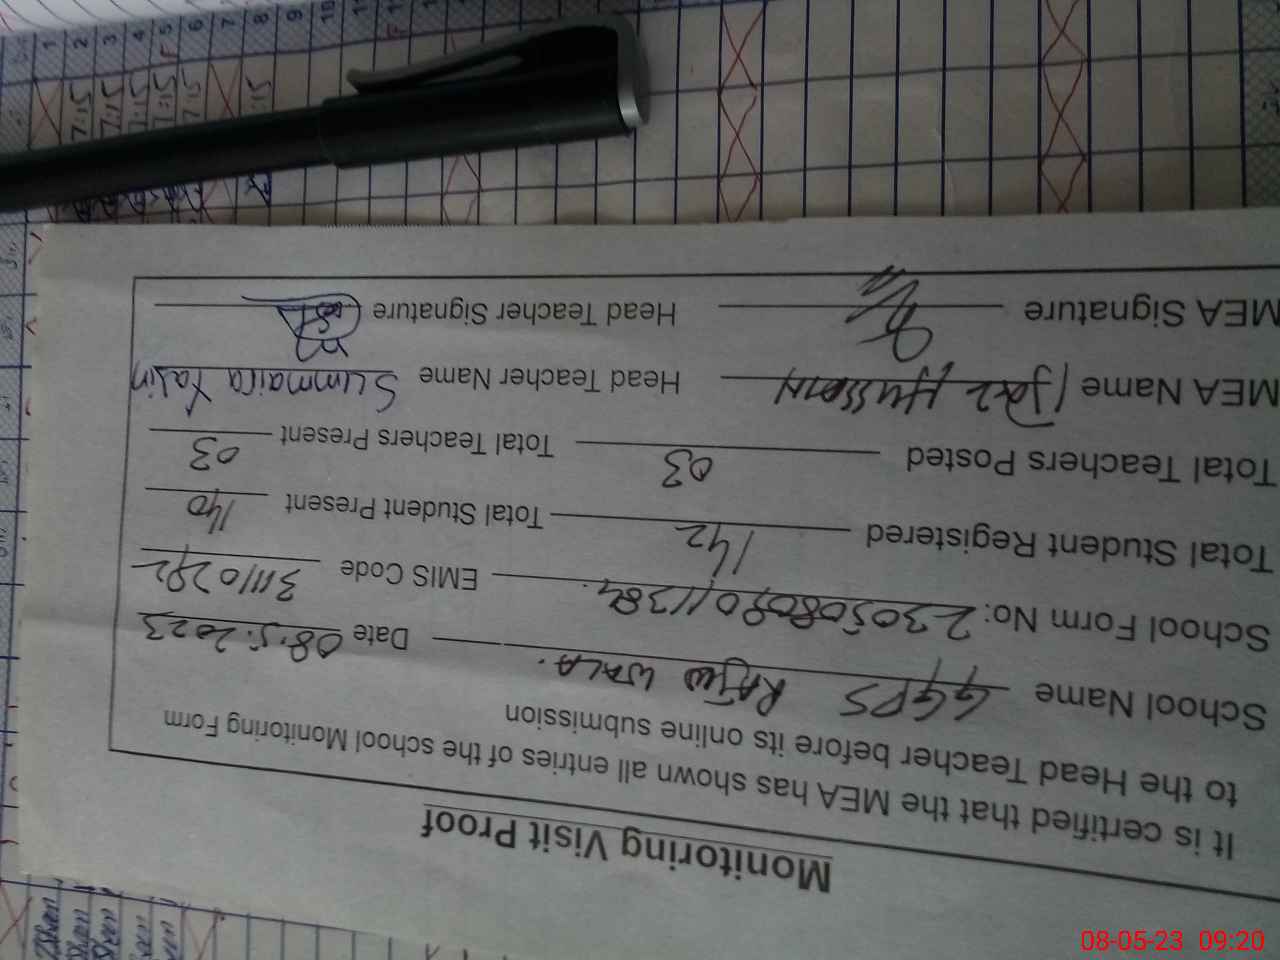 Monitoring Visit Proof
It is certified that the MEA has shown all entries of the school Monitoring Form
to the Head Teacher before its online submission
School Name GGPS RAJU WALA. Date 08.5.2023
School Form No: EMIS Code 31110282
Total Student Registered 142 Total Student Present 140
Total Teachers Posted 03 Total Teachers Present 03
MEA Name Ijaz Hussain Head Teacher Name Summaira Yasin
MEA Signature Head Teacher Signature
1 2 3 4 5 6 7 8 9 10 11
7:15 7:15 7:15 7:15 7:15 7:15
08-05-23 09:20